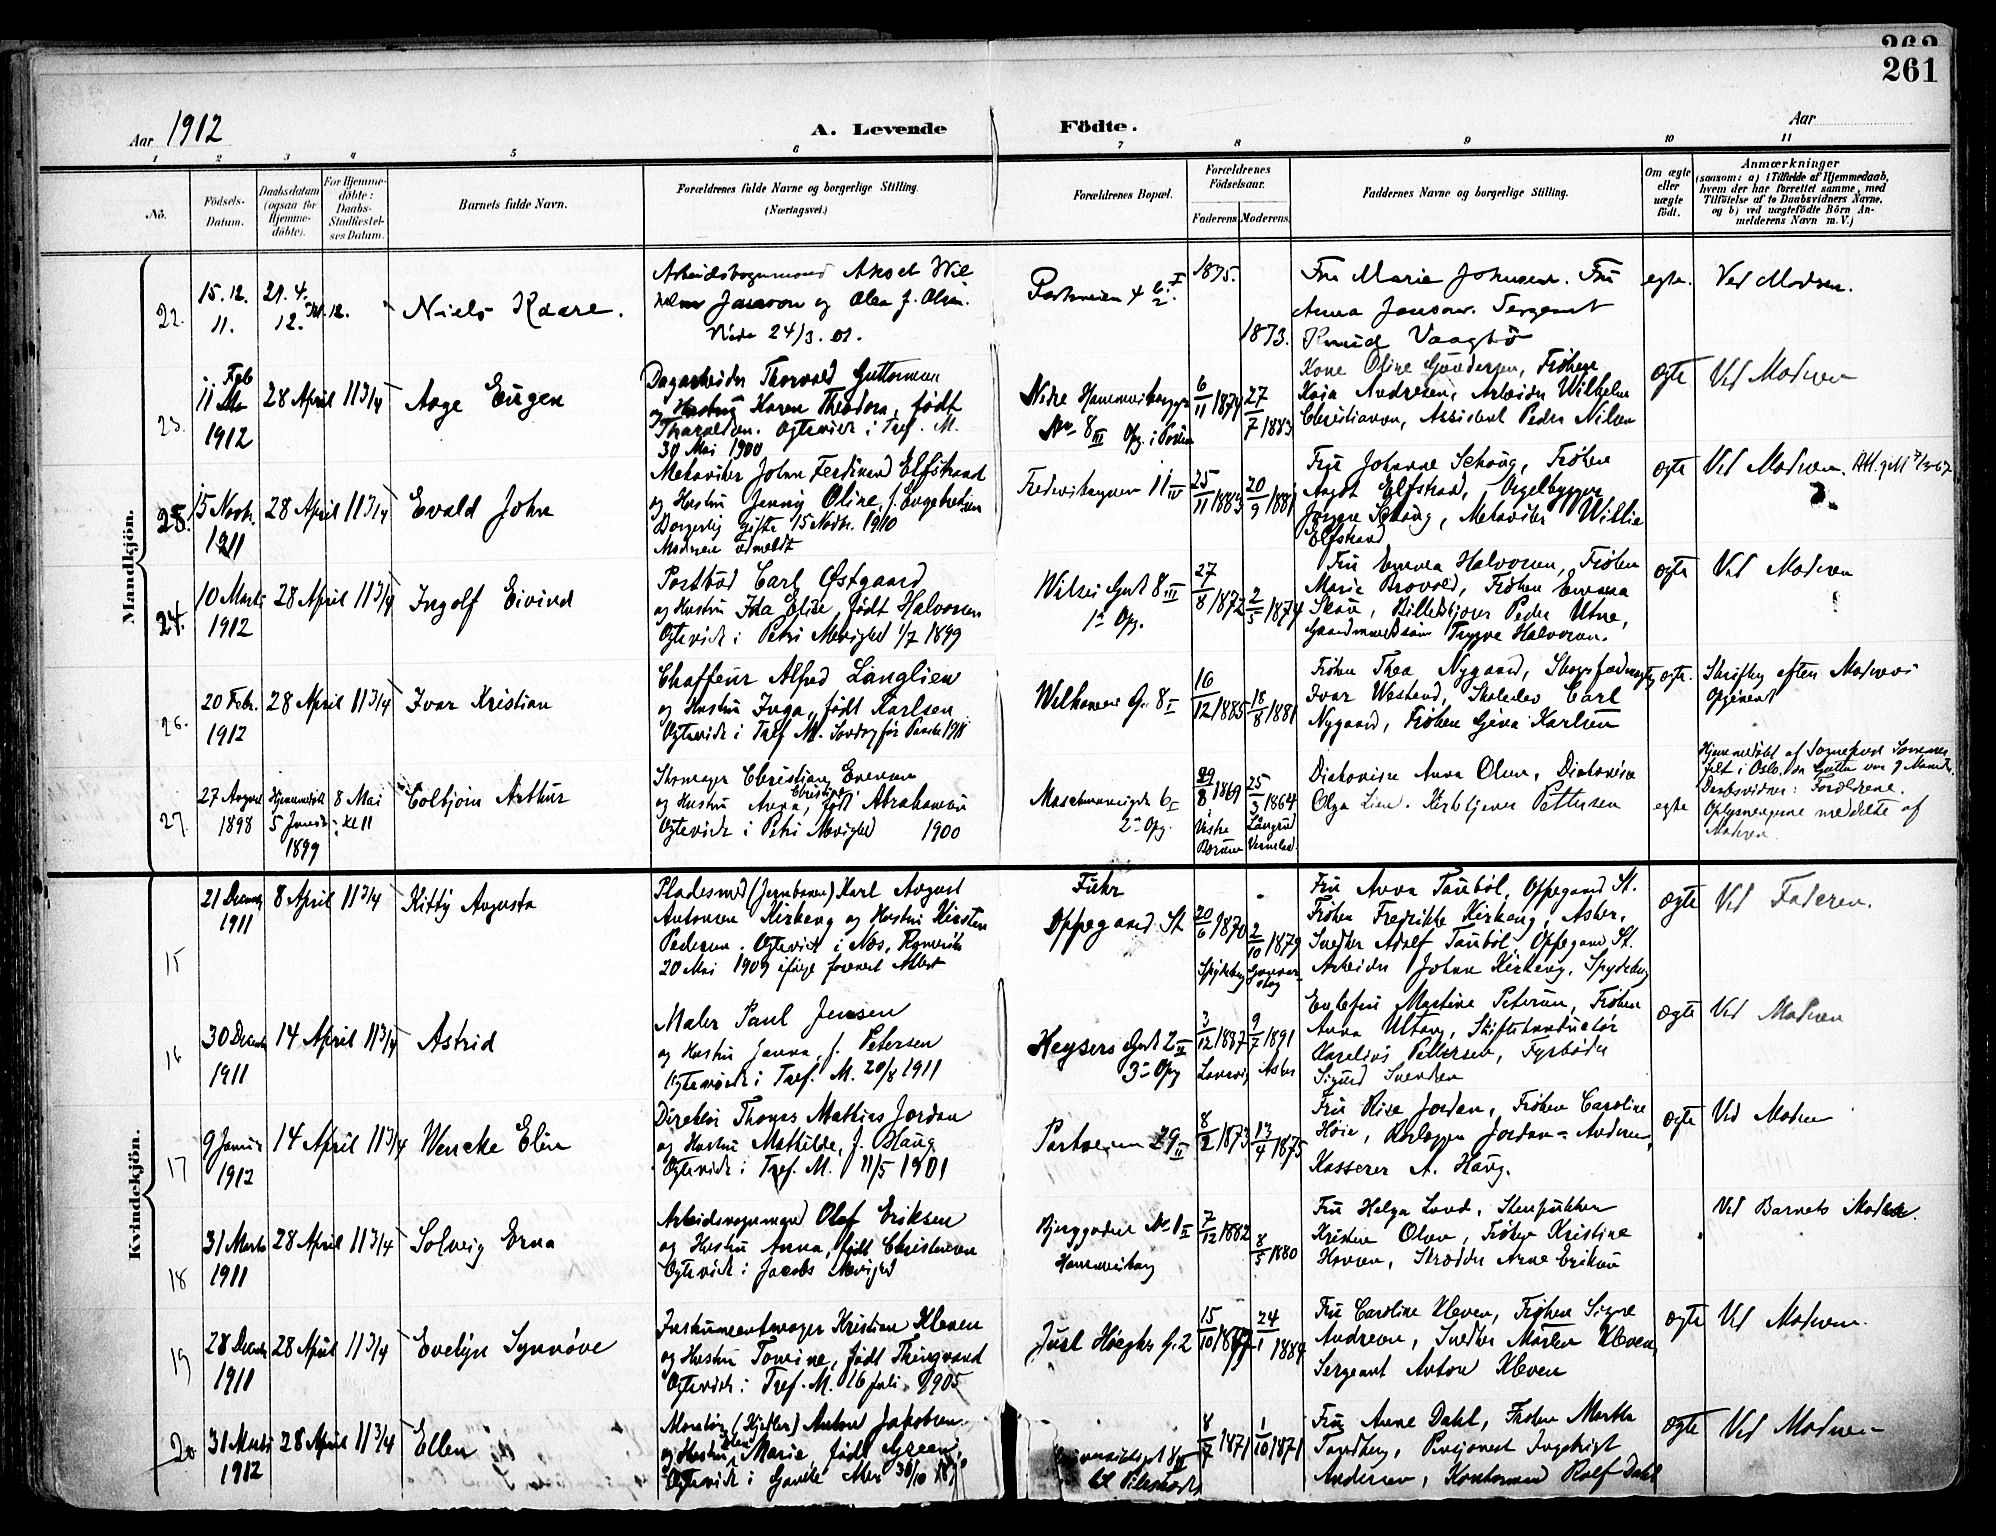 262
261
Aar 1912
A. Levende Födte.
Aar
1 2 3 4 5 6 7 8 9 10 11
No.
Födsels-
Datum.
Daabsdatum
(ogsaa for
Hjemme-
döbte).
For Hjemme-
döbte:
Daabs-
Stadfæstel-
ses Datum.
Barnets fulde Navn.
Forældrenes fulde Navne og borgerlige Stilling.
(Næringsvei.)
Forældrenes Bopæl.
Forældrenes
Födselsaar.
Faderens Moderens.
Faddernes Navne og borgerlige Stilling.
Om ægte
eller
uægte
födt.
Anmærkninger
(saasom: a) i Tilfælde af Hjemmedaab,
hvem der har forrettet samme, med
Tilföielse af to Daabsvidners Navne,
og b) ved uægtefödte Börn An-
melderens Navn m. V.)
Mandkjön.
22.
15. 12.
11.
21. 4.
12.
Niels Kaare.
Aksel Wil
og Olea f. Olsen.
24/3. 01.
Parkveien 4
1875.
1873.
Fru Marie Johnsen. Fru
Anna Jonson. Sergeant
Knud Vaagbö
egte.
Ved Modren.
23.
11 Feb
1912
28 April 11 3/4
Aage Eugen
Dagarbeider Thorvald Guttormsen
og Hustru Karen Theodora, født
Tharaldsen. Ægteviet i Tref. M.
30 Mai 1900
No 8 III Opg. i Porten
6/11 1874
27/7 1883
Kone Oline Gundersen, Frøken
Kaja Andresen, Arbeider Wilhelm
Christiansen, Assistent Peder Nilsen
ægte
Ved Modren
25.
15 Novbr.
1911
28 April 11 3/4
Evald John
Mekaniker John Ferdinand Elfstrand
og Hustru Jenny Oline, f. Engebretsen
Borgerlig gifte 15 Novbr. 1910
Modren udmeldt
Frederiksgaten 11 IV
25/11 1883
20/9 1881
Fru Johanne Schoug, Frøken
Aagot Elfstrand, Orgelbygger
Schoug, Mekaniker Willie
Elfstrand
ægte
Ved Modren.
24.
10 Marts
1912
28 April 11 3/4
Ingolf Eivind
Postbud Carl Østgaard
og Hustru Ida Elise, født Halvorsen
Ægteviet i Petri Menighed 1/7 1899
Wilses Gade 8 III
1ste Opg.
27/8 1872
2/5 1874
Fru Emma Halvorsen, Frøken
Marie Brovold, Frøken Emma
Skau, Peder Utne,
Trygve Halvorsen.
ægte
Ved Modren
26.
20 Febr.
1912
28 April 11 3/4
Ivar Kristian
Chaffeur Alfred Langlien
og Hustru Inga, født Karlsen
Ægteviet i Tref M. Søndag før Paaske 1911
8 I
16/12 1885
18/8 1881
Frøken Thea Nygaard,
Ivar Westend, Skoleelev Carl
Nygaard, Frøken Gina Karlsen
ægte.
Skriftlig efter Modrens
Opgivende
27.
27 August
1898
Hjemmedøbt
5 Januar
1899
8 Mai
Kl 11
Colbjörn Arthur
Skomager Christian Evensen
og Hustru Anna Christine, født Abrahamsen
Ægteviet i Petri Menighed 1900
6 I
2den Opg.
29/8 1869
Vestre
Bærum
25/3 1864
Diakonisse Anna Olsen, Diakonisse
Olga Lien. Kirketjener Pettersen
egte
Hjemmedøbt af Sognepræst Sommer
felt i Oslo, da Gutten var 9 Maaneder.
Daabsvidner: Forældrene.
Oplysningerne meddelte af
Modren.
Kvindekjön.
15
21 Decembr
1911
8 April 11 3/4
Kitty Augusta
Pladesmed (Jernbanen) Karl August
Antonsen Kirkeng og Hustru Kirsten
Pedersen. Ægteviet i Næs, Romerike
20 Mai 1909 ifølge forevist Attest
Oppegaard St
20/6 1870
Spydeberg
2/10 1879
Fru Anna Tanbøl, Oppegaard St.
Frøken Fredrikke Kirkeng, Asker,
Snedker Adolf Tanbøl, Oppegaard St.
Arbeider Johan Kirkeng, Spydeberg
ægte
Ved Faderen.
16
30 Decembr
1911
14 April 11 3/4
Astrid
Maler Paul Jensen
og Hustru Janna, f. Petersen
Ægteviet i Tref. M. 20/8 1911
Keysers Gade 2 II
3die Opg
3/12 1887
9/7 1891
Asker
Enkefru Martine Petersen, Frøken
Anna
Karelius Pettersen, Fyrbøder
Sigurd Svendsen
ægte
Ved Modren
17
9 Januar
1912
14 April 11 3/4
Wencke Elin
Direktør Thomas Mathias Jordan
og Hustru Mathilde, f. Haug
Ægteviet i Tref. M. 11/5 1901
Parkveien 29 II
8/2 1873
13/4 1875
Fru Rise Jordan, Frøken Caroline
Høie, Jordan-Andersen,
Kasserer A. Haug.
ægte
Ved Modren
18
31 Marts
1911
28 April 11 3/4
Solveig Erna
Arbeidsvognmand Olaf Eriksen
og Hustru Anna, født Christensen
Ægteviet i Jacobs Menighed
No 1 II
7/12 1882
8/5 1880
Fru Helga Lund, Stenpukker
Kristen Olsen, Frøken Kristine
Hansen, Skrædder Arne Eriksen
Ved Barnets Moder.
19
28 Decembr
1911
28 April 11 3/4
Evelyn Synnøve
Instrumentmager Kristian Kleven
og Hustru Tomine, født Thingvand
Ægteviet i Tref. M. 16 Juli 1905
Just Høeghs G. 2
15/10
24/1 1884
Fru Caroline Kleven, Frøken Signe
Andresen, Snedker Martin Kleven,
Sergeant Anton Kleven
ægte
Ved Modren.
20
31 Marts
1912
28 April 11 3/4
Ellen
Montør (Kjedler) Anton Jakobsen.
og Hustru Marie, født Green,
Ægteviet i Gamle Aker 30/10
8/7 1871
1/10 1871
Fru Anne Dahl, Frøken Martha
Tandberg, Ingebrigt
Andersen, Kontormand Rolf Dahl
ægte
Ved Modren